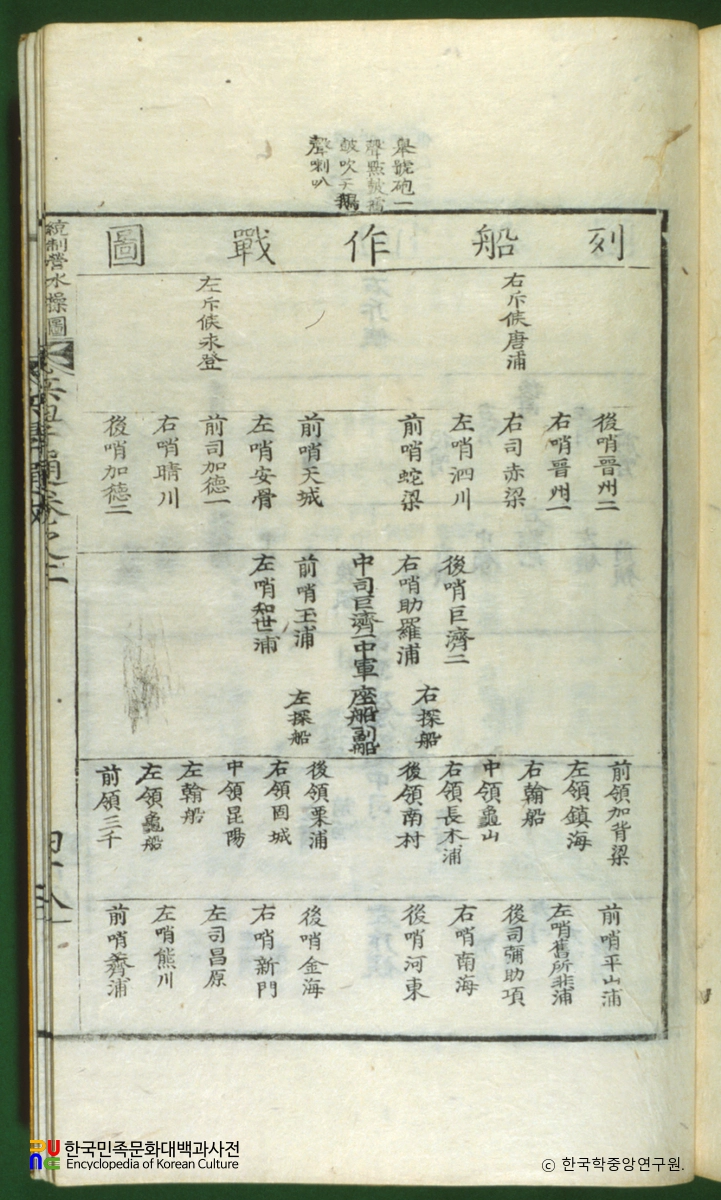 擧號砲一
聲點鼓
鼓吹天鵝
聲喇叭
列船作戰圖
右斥候唐浦
左斥候永登
後哨晉州二
右哨晉州一
右司赤梁
左哨泗川
前哨蛇梁
前哨天城
左哨安骨
前司加德一
右哨晴川
後哨加德二
後哨巨濟二
右哨助羅浦
中司巨濟一中軍座船副船
前哨玉浦
左哨知世浦
右探船
左探船
前領加背梁
左領鎭海
右翰船
中領龜山
右領長木浦
後領南村
後領栗浦
右領固城
中領昆陽
左翰船
左領龜船
前領三千
前哨平山浦
左哨舊所非浦
後司彌助項
右哨南海
後哨河東
後哨金海
右哨新門
左司昌原
左哨熊川
前哨薺浦
統制營水操圖
兵學通卷之二
四十八
한국민족문화대백과사전
Encyclopedia of Korean Culture
ⓒ 한국학중앙연구원.